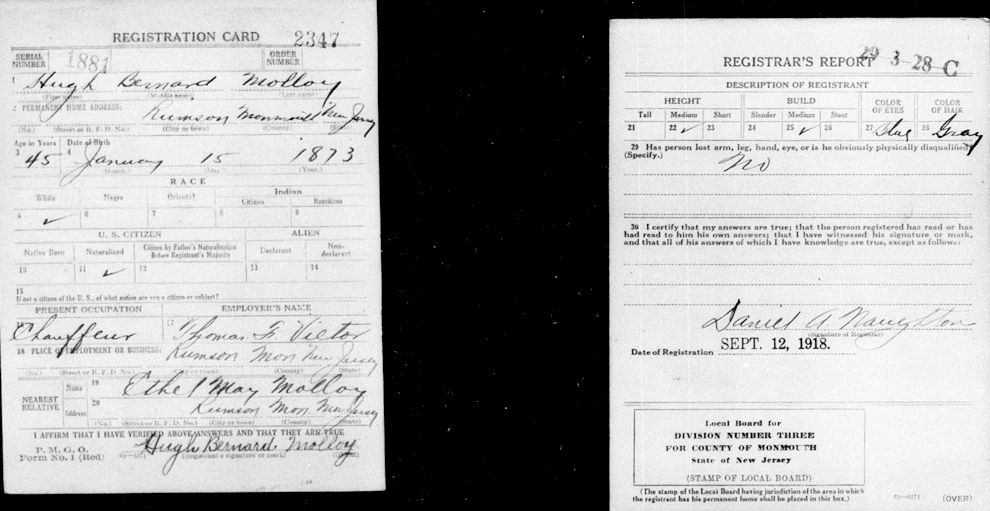 REGISTRATION CARD 2347
SERIAL NUMBER 1881 ORDER NUMBER
1 Hugh Bernard Molloy
(First name) (Middle name) (Last name)
2 PERMANENT HOME ADDRESS:
Rumson Monmouth New Jersey
(No.) (Street or R. F. D. No.) (City or town) (County) (State)
Age in Years Date of Birth
3 45 4 January 15 1873
(Month.) (Day.) (Year.)
RACE
White Negro Oriental Indian
Citizen Noncitizen
5 ✓ 6 7 8 9
U. S. CITIZEN ALIEN
Native Born Naturalized Citizen by Father's Naturalization Before Registrant's Majority Declarant Non-declarant
10 11 ✓ 12 13 14
15
If not a citizen of the U. S., of what nation are you a citizen or subject?
PRESENT OCCUPATION EMPLOYER'S NAME
Chauffeur 17 Thomas F. Vietor
18 PLACE OF EMPLOYMENT OR BUSINESS:
Rumson Mon New Jersey
(No.) (Street or R. F. D. No.) (City or town) (County) (State)
NEAREST RELATIVE
Name 19 Ethel May Molloy
Address 20 Rumson Mon New Jersey
(No.) (Street or R. F. D. No.) (City or town) (County) (State)
I AFFIRM THAT I HAVE VERIFIED ABOVE ANSWERS AND THAT THEY ARE TRUE
P. M. G. O.
Form No. 1 (Red) Hugh Bernard Molloy
(Registrant's signature or mark)
REGISTRAR'S REPORT 29-3-28-C
DESCRIPTION OF REGISTRANT
HEIGHT BUILD COLOR OF EYES COLOR OF HAIR
Tall Medium Short Slender Medium Stout
21 22 ✓ 23 24 25 ✓ 26 27 Blue 28 Gray
29 Has person lost arm, leg, hand, eye, or is he obviously physically disqualified?
(Specify.) No
30 I certify that my answers are true; that the person registered has read or has
had read to him his own answers; that I have witnessed his signature or mark,
and that all of his answers of which I have knowledge are true, except as follows:
Daniel A. Naughton
(Signature of Registrar)
Date of Registration SEPT. 12, 1918.
Local Board for
DIVISION NUMBER THREE
FOR COUNTY OF MONMOUTH
State of New Jersey
(STAMP OF LOCAL BOARD)
(The stamp of the Local Board having jurisdiction of the area in which
the registrant has his permanent home shall be placed in this box.)
(OVER)